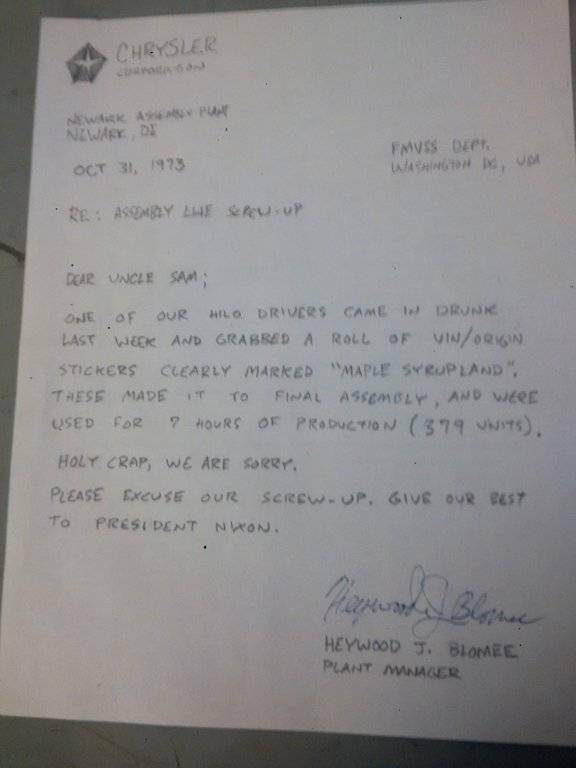 CHRYSLER
CORPORATION
NEWARK ASSEMBLY PLANT
NEWARK, DE
OCT 31, 1973
FMVSS DEPT.
WASHINGTON DC, USA
RE: ASSEMBLY LINE SCREW-UP
DEAR UNCLE SAM;
ONE OF OUR HILO DRIVERS CAME IN DRUNK
LAST WEEK AND GRABBED A ROLL OF VIN/ORIGIN
STICKERS CLEARLY MARKED "MAPLE SYRUPLAND".
THESE MADE IT TO FINAL ASSEMBLY, AND WERE
USED FOR 7 HOURS OF PRODUCTION (379 UNITS).
HOLY CRAP, WE ARE SORRY.
PLEASE EXCUSE OUR SCREW-UP. GIVE OUR BEST
TO PRESIDENT NIXON.
Heywood J. Blomee
HEYWOOD J. BLOMEE
PLANT MANAGER